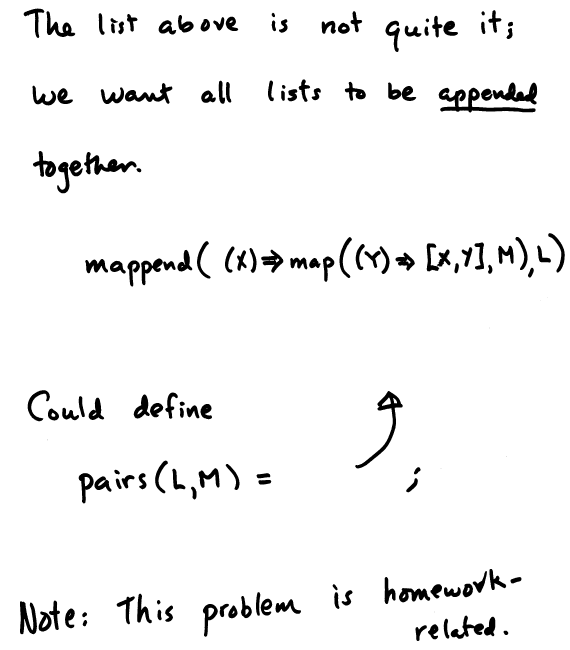 The list above is not quite it;
we want all lists to be appended
together.
mappend( (X)⇒map((Y)⇒ [X,Y],M),L)
Could define
pairs(L,M) = ;
Note: This problem is homework-
related.